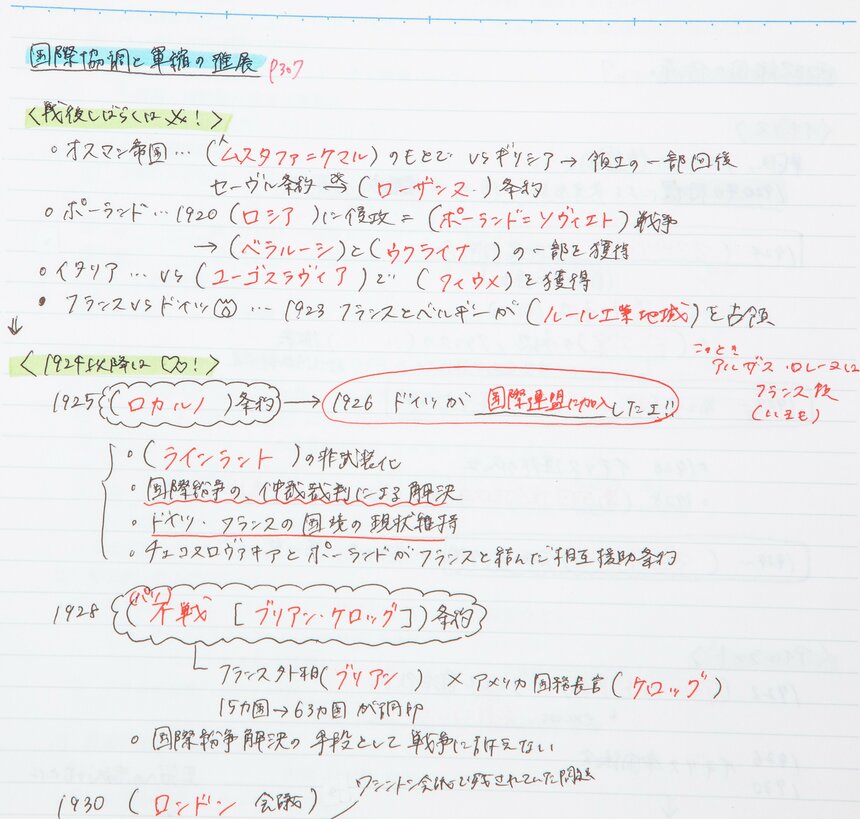 国際協調と軍縮の進展 P307
<戦後しばらくは !>
○オスマン帝国…(ムスタファ=ケマル)のもとで vsギリシア→領土の一部回復
セーヴル条約 (ローザンヌ)条約
○ポーランド…1920(ロシア)に侵攻=(ポーランド=ソヴィエト)戦争
→(ベラルーシ)と(ウクライナ)の一部を獲得
○イタリア…vs(ユーゴスラヴィア)で(フィウメ)を獲得
• フランスvsドイツ…1923 フランスとベルギーが(ルール工業地域)を占領
⇓
<1924以降は♡!>
このとき
アルザス・ロレーヌは
フランス領
(いまも)
1925(ロカルノ)条約→1926 ドイツが国際連盟に加入したエ!!
○(ラインラント)の非武装化
○国際紛争の、仲裁裁判による解決
○ドイツ・フランスの国境の現状維持
○チェコスロヴァキアとポーランドがフランスと結んだ相互援助条約
1928(パリ不戦[ブリアン・ケロッグ])条約
フランス外相(ブリアン)×アメリカ国務長官(ケロッグ)
15カ国→63カ国が調印
○国際紛争解決の手段として戦争に訴えない
1930(ロンドン会議) ワシントン会議で残されていた問題